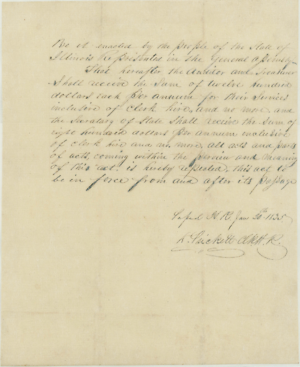 Be it enacted by the people of the State of
Illinois Represented in the General Assembly
That hereafter the Auditor and Treasurer
Shall receive the Sum of twelve hundred
dollars each per annum for their Services
inclusive of clerk hire, and no more, and
the Secretary of State Shall receive the Sum of
eight hundred dollars per annum inclusive
of clerk hire and no more, all acts and parts
of acts, coming within the purview and meaning
of this act is hereby repealed, this act to
be in force from and after its passage
Passed H. R. Jany 1835
D. Prickett C H R